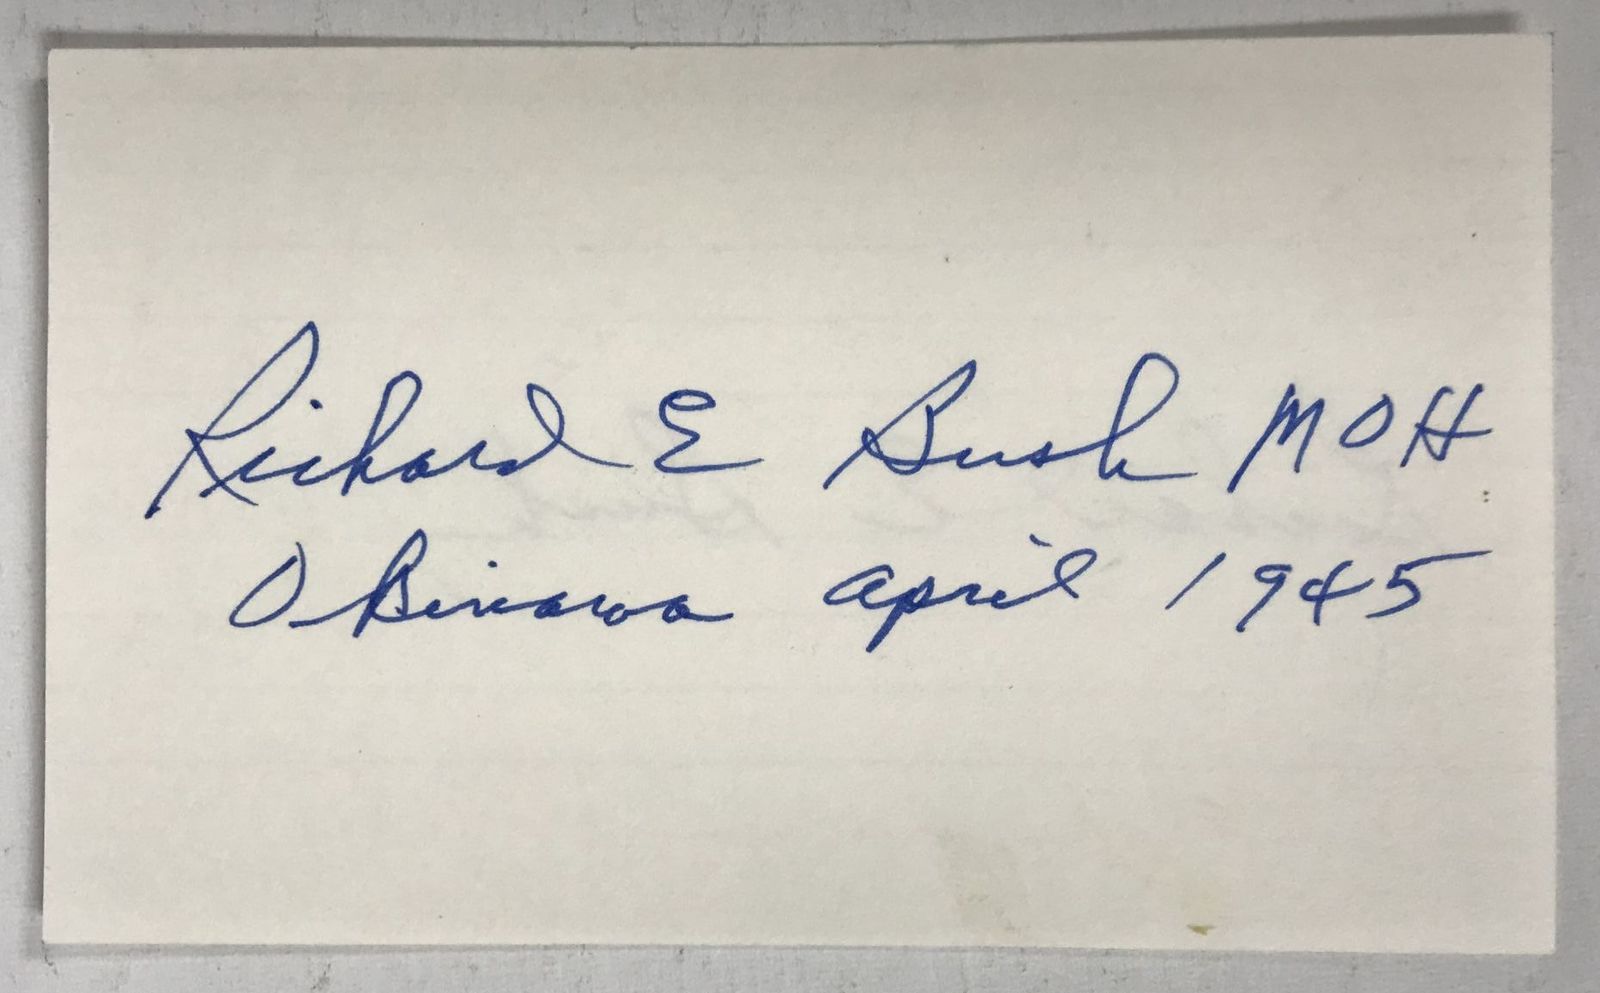 Richard E Bush MOH
Okinawa april 1945